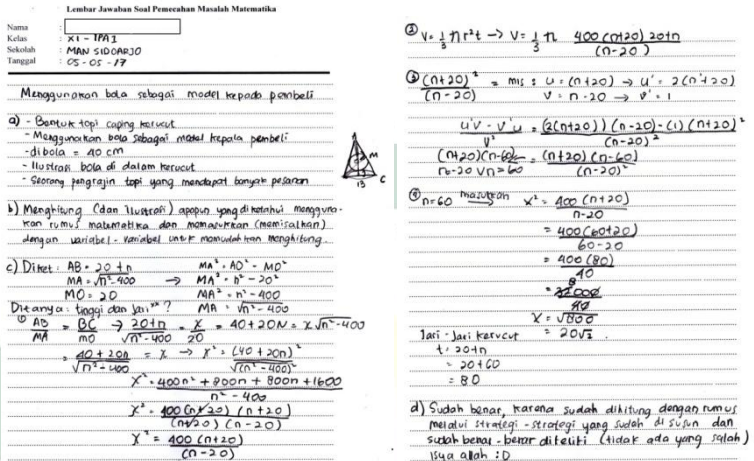 Lembar Jawaban Soal Pemecahan Masalah Matematika
Nama :
Kelas : XI - IPA 1
Sekolah : MAN SIDOARJO
Tanggal : 05-05-17
Menggunakan bola sebagai model kepada pembeli
a) - Bentuk topi caping kerucut
- Menggunakan bola sebagai model kepala pembeli
- d bola = 40 cm
- Ilustrasi bola di dalam kerucut
- Seorang pengrajin topi yang mendapat banyak pesanan
A
M
B C
b) Menghitung (dan ilustrasi) apapun yang diketahui mengguna-
kan rumus matematika dan memasukkan (memisalkan)
dengan variabel - variabel untuk memudahkan menghitung.
c) Diket : AB = 20 + n MA² = AO² - MO²
MA = √n²-400 → MA² = n² - 20²
MO = 20 MA² = n² - 400
Ditanya : tinggi dan jari" ? MA = √n² - 400
① AB/MA = BC/MO → 20+n/√n²-400 = x/20 = 40+20N = x√n²-400
= 40 + 20n/√n²-400 = x → x² = (40 + 20n)²/√(n²-400)²
x² = 400n² + 800n + 800n + 1600/n² - 400
x² = 400 (n+20) (n+20)/(n+20) (n-20)
x² = 400 (n+20)/(n-20)
② V = 1/3 π r² t → V = 1/3 π 400 (n+20) 20+n/(n-20)
③ (n+20)²/(n-20) = mis : u = (n+20) → u' = 2(n+20)
v = n-20 → v' = 1
u'v - v'u/v² = (2(n+20)) (n-20) - (1) (n+20)²/(n-20)²
(n+20)(n-60) = (n+20) (n-60)/(n-20)²
n=-20 v n=60
④ n=60 masukkan → x² = 400 (n+20)/n-20
= 400 (60+20)/60-20
= 400 (80)/40
= 32000/40
x = √800
Jari - jari kerucut = 20√2
t = 20+n
= 20+60
= 80
d) Sudah benar, karena sudah dihitung dengan rumus
melalui strategi - strategi yang sudah di susun dan
sudah benar - benar diteliti (tidak ada yang salah)
isya allah :D